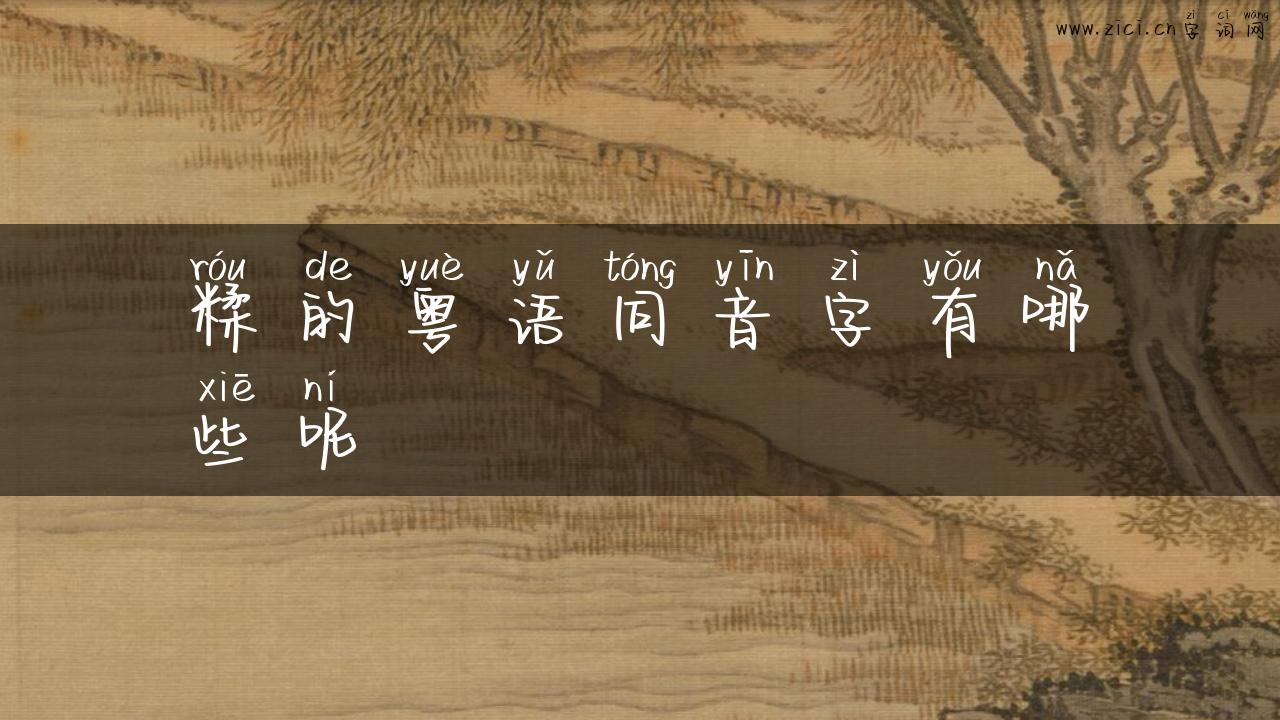 zì cí wǎng
www.zici.cn字词网
róu de yuè yǔ tóng yīn zì yǒu nǎ
糅的粤语同音字有哪
xiē ní
些呢